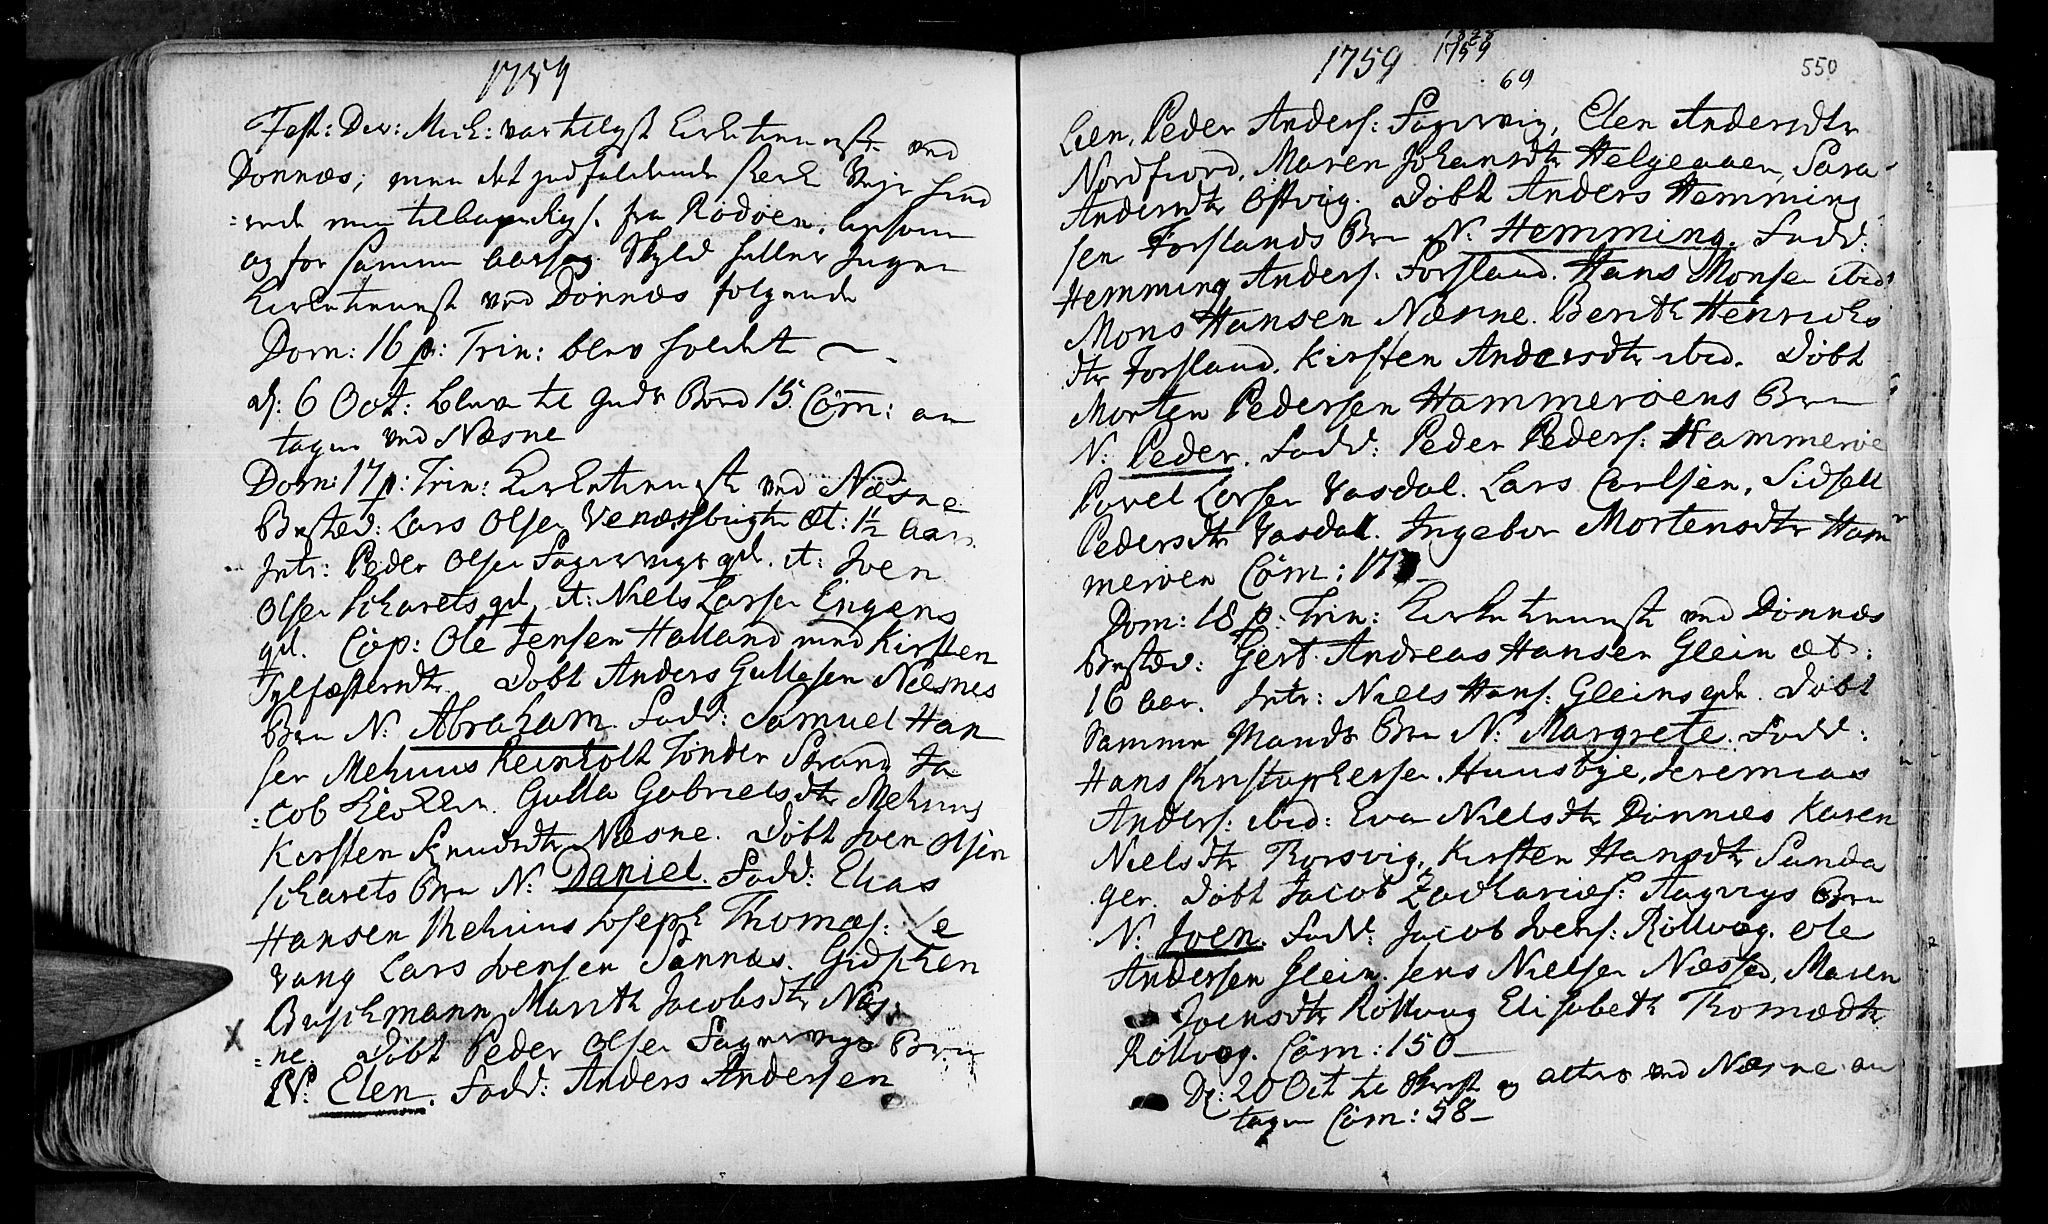 1759
Fest: Div: Mich: var tillyst Kirketienneste ved
Dönnæs; men det indfaldende Vejr hind
=rede min tilbage Rejse fra Rödöen; ligesom
og for samme Aarsag Skyld holtes Ingen
Kirketienneste ved Dönnæs følgende
Dom: 16 p: Trin: blev holdet
d: 6 Oct: bleve til Guds Bord 15 Com̄: an
tagen ved Næsne
Dom: 17 p: Trin: Kirketienneste ved Næsne
Bested: Lars Olsen æt: 1½ Aar
Intr: Peder Olsen qv. it: Iven
Olsen qv. it: Niels Larsen Engens
qv. Cop: Ole Jensen Halland med Kirsten
Döbt Anders Gullesen Næsnes
Brn N: Abraham. Fadd: Samuel Han
sen Mehuus Reinholt Tönder Strand Ja
=cob Gulla Gabrielsdtr Mehuus
Kirsten Knudsdtr Næsne. Döbt Iven Olsen
Brn N: Daniel. Fadd: Elias
Hansen Mehuus Joseph Thomæs: Le
vang Lars Iversen Sannæs. Gidschen
Buschmann Marith Jacobsdtr Næs
X =ne. Döbt Peder Olsen Brn
N: Elen. Fadd: Anders Andersen
1759 1759
69
550
Lien, Peder Anders: Elen Andersdtr
Nordfiord, Maren Johansdtr Helgeaaen, Sara
Andersdtr Ostvig. Döbt Anders Hemming
sen Forslands Brn N: Hemming. Fadd:
Hemming Anders: Forsland. Hans Monsen ibid
Mons Hansen Næsne. Berith Henrichs
dtr Forsland. Kirsten Andersdtr ibid. Döbt
Morten Pedersen Hammeröens Brn
N: Peder. Fadd: Peder Peders: Hammeröe
Povel Larsen Vasdal. Lars Carlsen, Sidsell
Pedersdtr Vasdall. Ingebor Mortensdtr Ham
meröen Com̄: 17
Dom: 18 p: Trin: Kirketienneste ved Dönnæs
Bested: Gert Andreas Hansen Glein æt:
16 Aar. Intr: Niels Hans: Gleins qv. Döbt
Samme Mands Brn N: Margrete. Fadd:
Hans Christophersen Huusbye, Jeremias
Anders: ibid: Eva Nielsdtr Dönnæs Karen
Nielsdtr Thorsvig, Kirsten Hansdtr Sunda
ger. Döbt Jacob Zachariæs: Brn
N: Iven. Fadd: Jacob Ivers: Röllvog. Ole
Andersen Glein. Jens Nielsen Næssen, Maren
Ivensdtr Röllvaag Elisabeth Thomædtr
Röllvog. Com̄: 150
D: 20 Oct til Skrift og alters ved Næsne an
tagen Com̄: 58